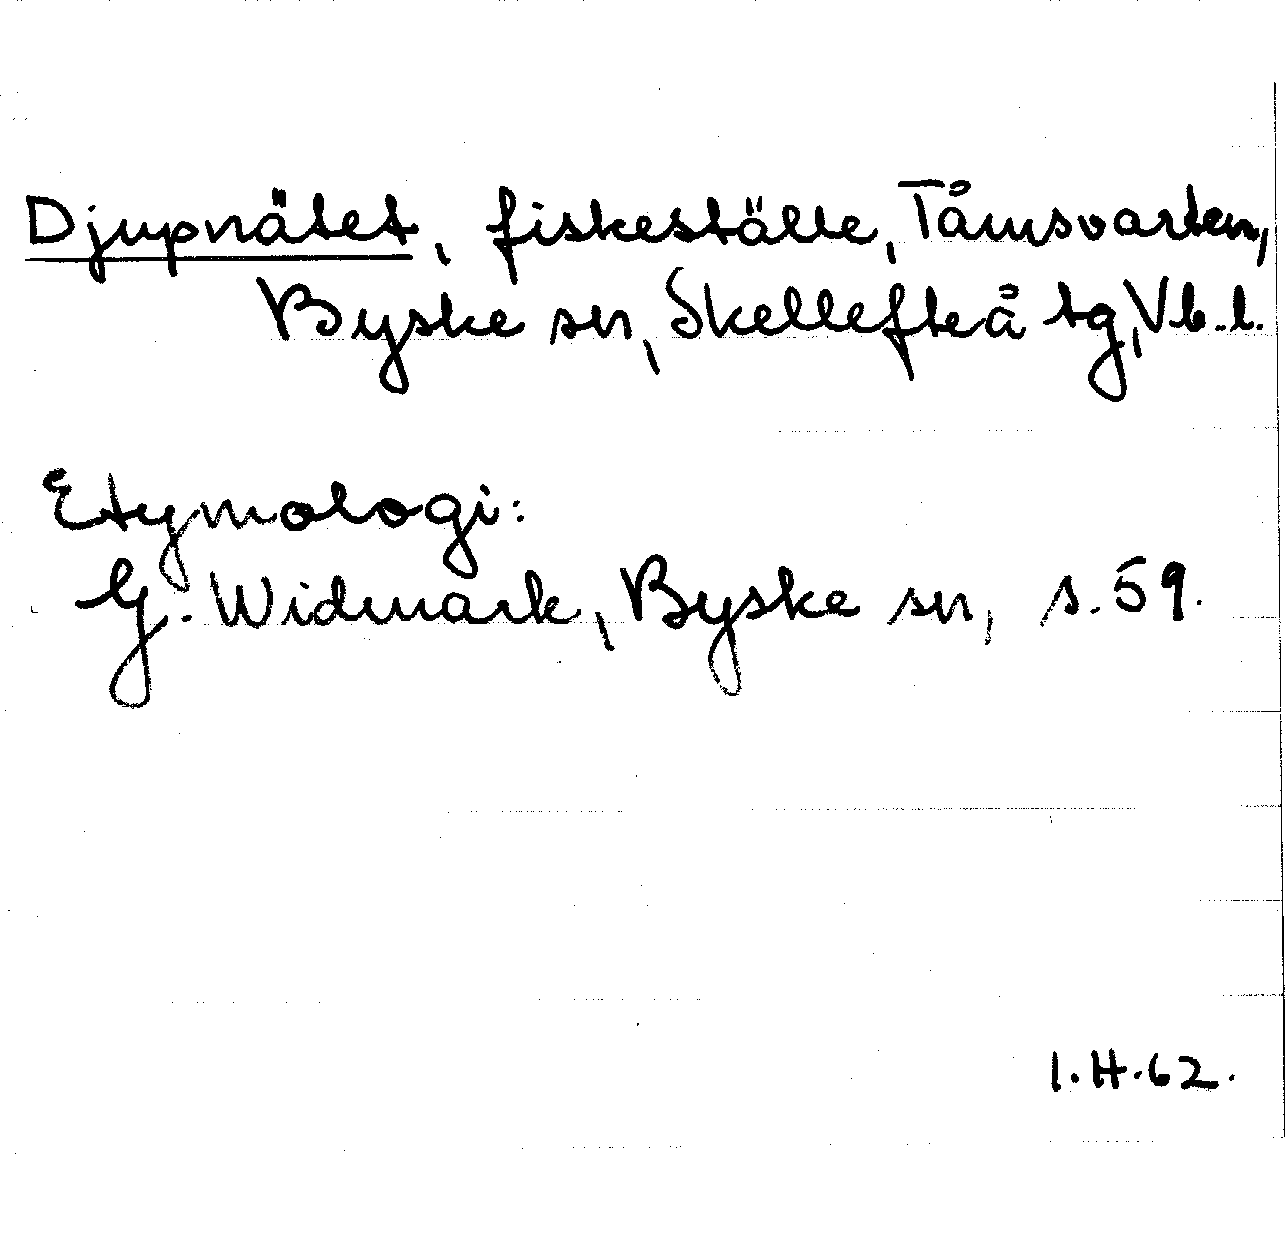 Djupnätet, fiskeställe, Tåmsvarten,
Byske sn, Skellefteå tg, Vb.l.
Etymologi:
G. Widmark, Byske sn, s. 59.
I.H.62.